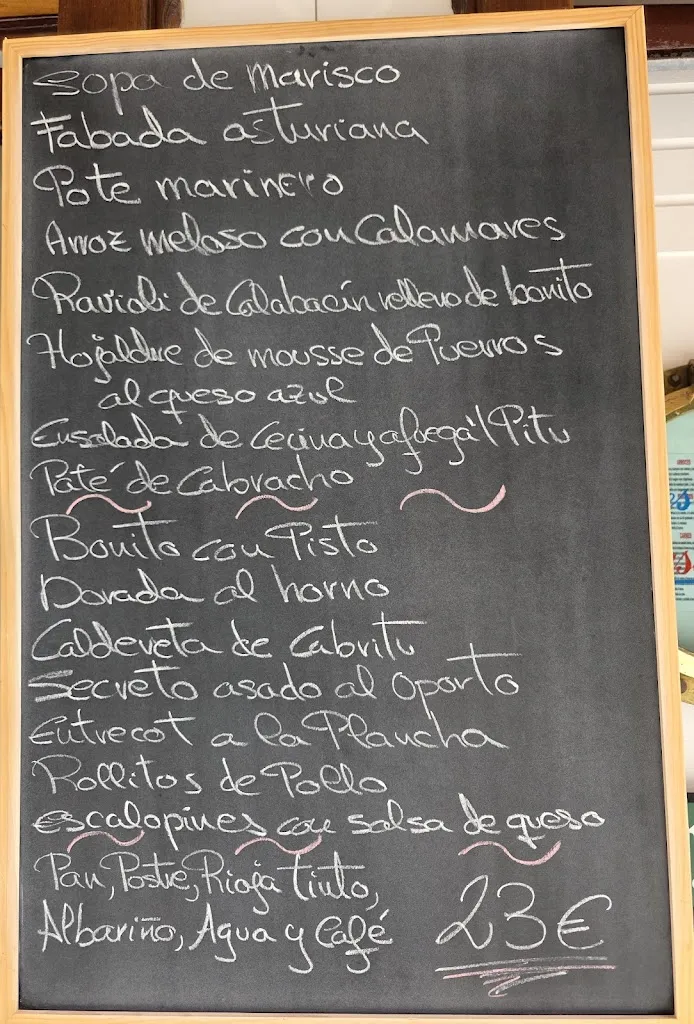 Sopa de Marisco
Fabada asturiana
Pote marinero
Arroz meloso con Calamares
Ravioli de Calabacín relleno de bonito
Hojaldre de mousse de Puerros
al queso azul
Ensalada de Cecina y afuega'l Pitu
Paté de Cabracho
Bonito con Pisto
Dorada al horno
Caldereta de Cabritu
Secreto asado al Oporto
Entrecot a la Plancha
Rollitos de Pollo
escalopines con salsa de queso
Pan, Postre, Rioja tinto,
Albariño, Agua y Café 23€